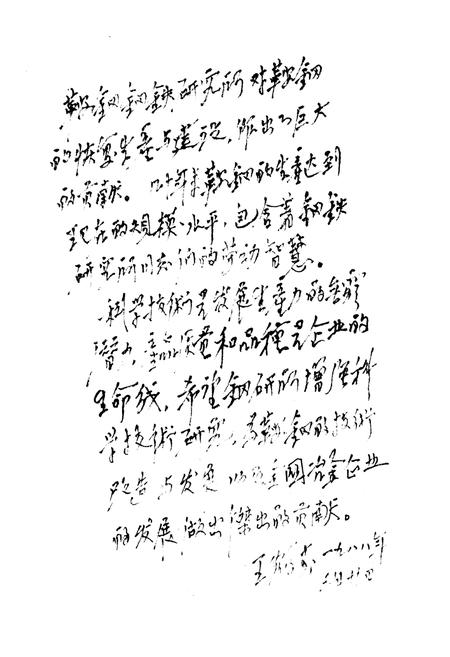 鞍钢钢铁研究所对鞍钢
的恢复生产与建设，作出了巨大
的贡献。几十年来鞍钢的生产达到
现在的规模、水平，包含着钢铁
研究所同志们的劳动智慧。
科学技术是发展生产力的
潜力，产品质量和品種是企业的
生命线，希望钢研所增强科
学技术研究，为鞍钢的技术
改造与发展以及全國冶金企业
的发展做出傑出的贡献。
王 一九八八年